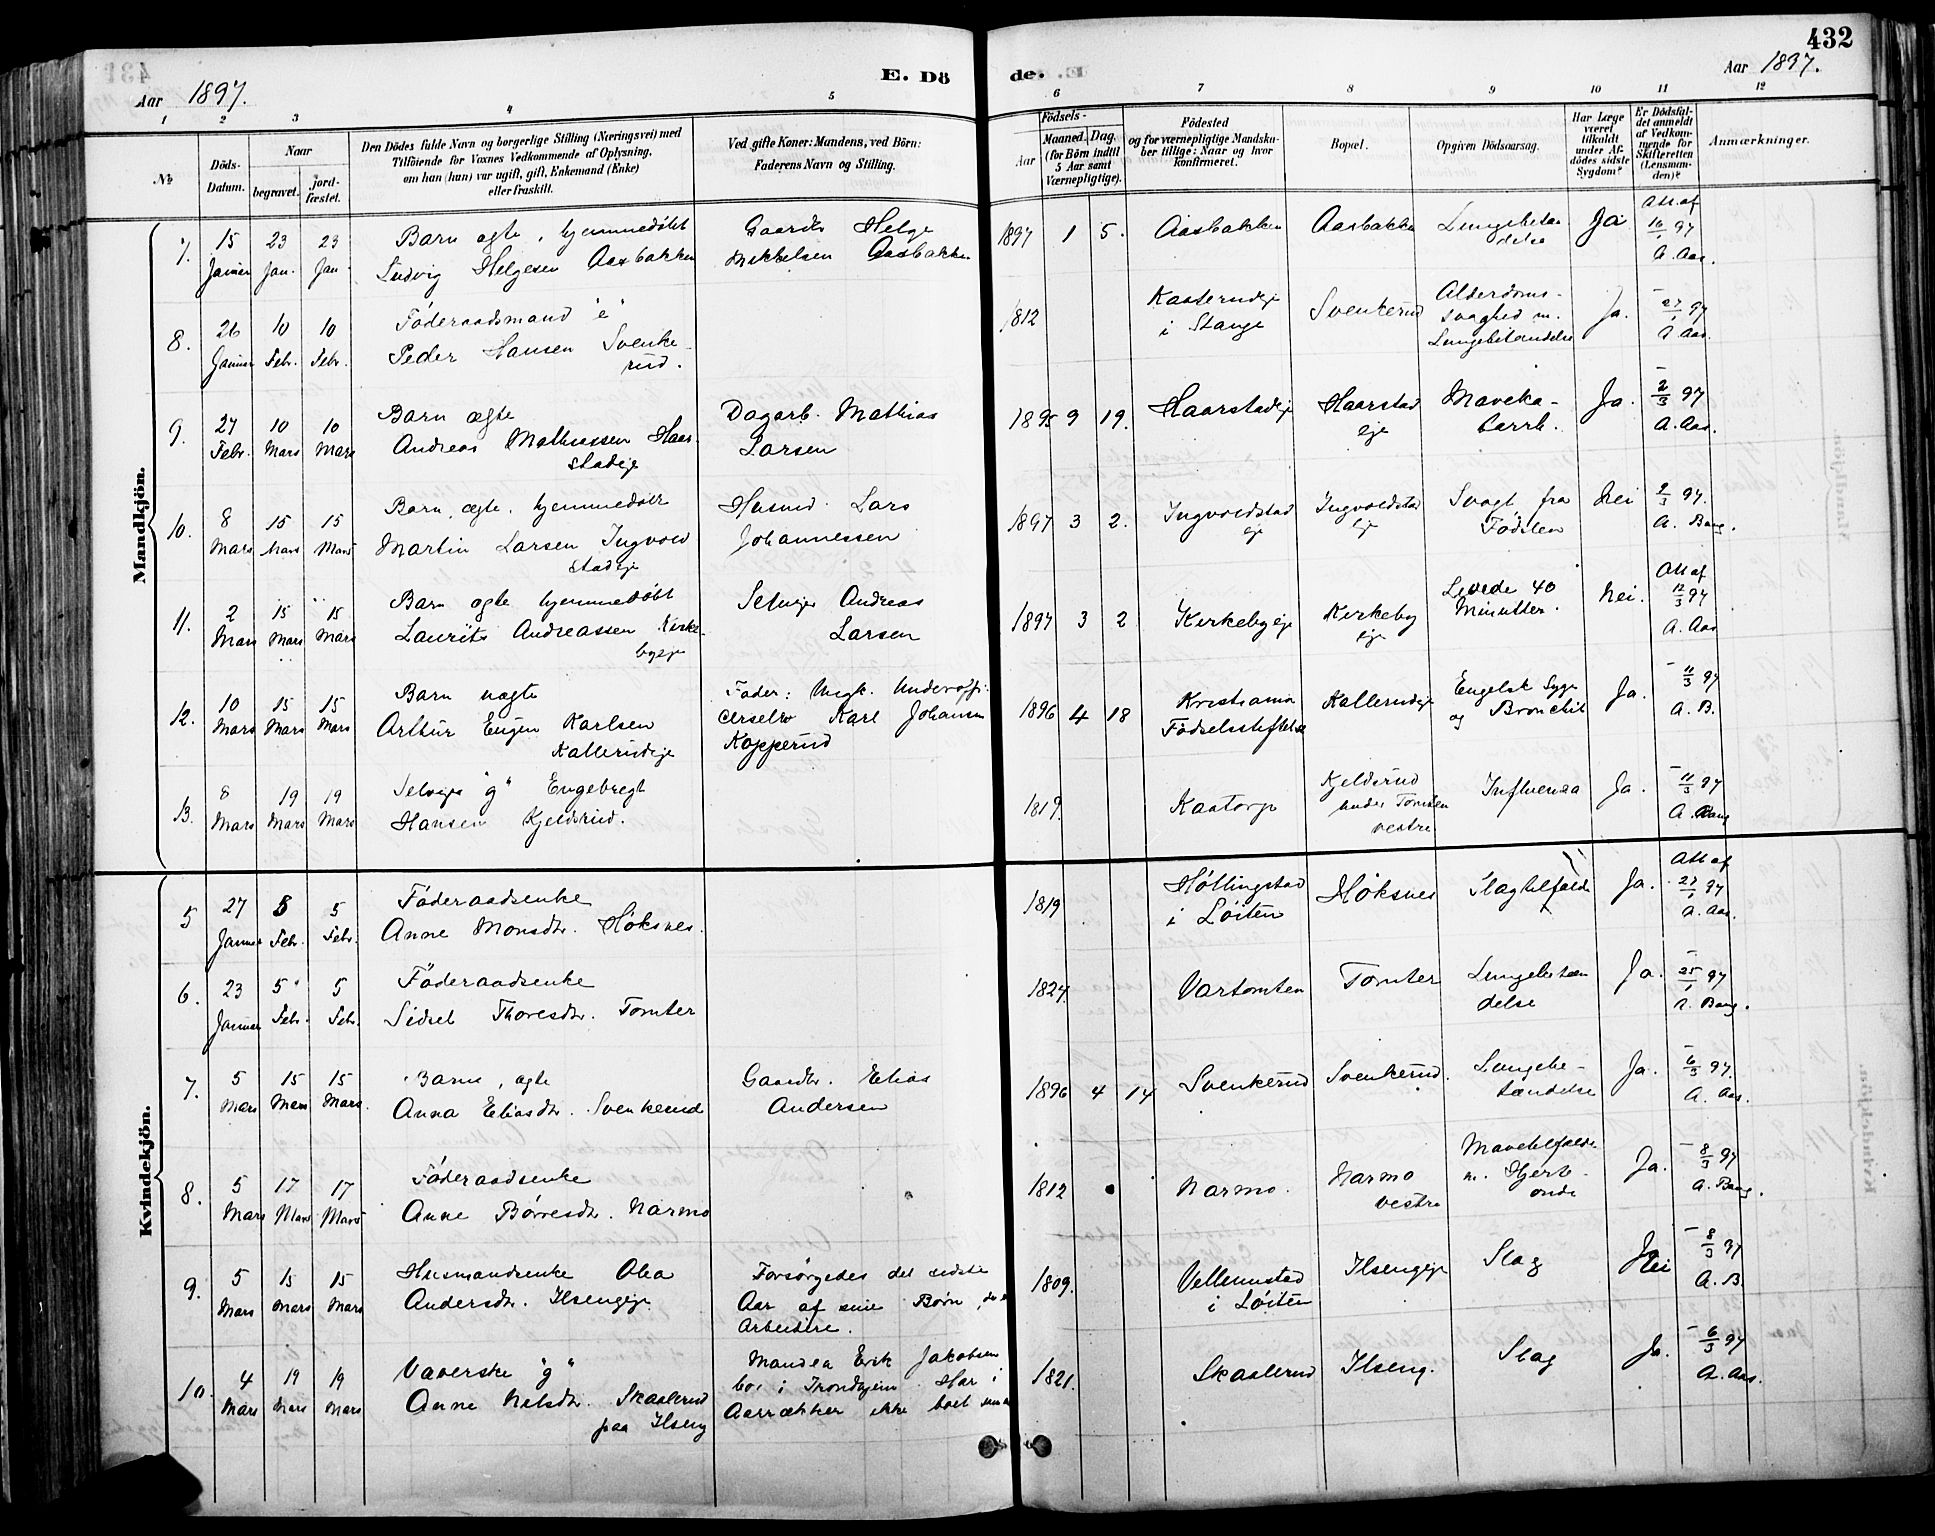 432
Aar 1897.
E. Dö
de.
Aar 1897.
1
2
3
4
5
6
7
8
9
10
11
12
No
Döds-
Datum.
Naar
begravet.
jord-
fæstet.
Den Dödes fulde Navn og borgerlige Stilling (Næringsvei) med
Tilföiende for Voxnes Vedkommende af Oplysning,
om han (hun) var ugift, gift, Enkemand (Enke)
eller fraskilt.
Ved gifte Koner: Mandens, ved Börn:
Faderens Navn og Stilling.
Födsels-
Aar
Maaned.
Dag.
(for Börn indtil
5 Aar samt
Værnepligtige).
Födested
og for værnepligtige Mandska-
ber tillige: Naar og hvor
konfirmeret.
Bopæl.
Opgiven Dödsaarsag.
Har Læge
været
tilkaldt
under Af-
dödes sidste
Sygdom?
Er Dödsfal-
det anmeldt
af Vedkom-
mende for
Skifteretten
(Lensman-
den)?
Anmærkninger.
Mandkjön.
7. 15 Januar 23 Jan. 23 Jan.
Barn ægte, hjemmedøbt
Ludvig Helgesen Aasbakken
Gaardbr. Helge
Mikkelsen Aasbakken
1897 1 5. Aasbakken Aasbakken Lungebetæn
delse Ja
Att af
16/1 97
A. Aas.
8. 26 Januar 10 Febr. 10 Febr.
Föderaadsmand "e"
Peder Hansen Svenke-
rud.
1812 Kaaterudeje
i Stange
Svenkerud
Alderdoms-
svaghed m.
Lungebetændelse
Ja.
27/1 97
A. Aas.
9. 27 Febr. 10 Mars 10 Mars
Barn ægte
Andreas Mathiassen Haar-
stadeje
Dagarb. Mathias
Larsen
1895 9 19. Haarstadeje Haarstad
eje
Maveka-
tarrh.
Ja.
2/3 97
A. Aas.
10. 8 Mars 15 Mars 15 Mars
Barn, ægte, hjemmedøbt
Martin Larsen Ingvold
stadeje
Husmd. Lars
Johannessen
1897 3 2. Ingvoldstad
eje
Ingvoldstad
eje
Svagt fra
Födslen
Nei
9/3 97.
A. Bang.
11. 2 Mars 15 Mars 15 Mars
Barn ægte hjemmedøbt
Laurits Andreassen Kirke-
byeje
Selvejer Andreas
Larsen
1897 3 2 Kirkebyeje Kirkeby
eje
Levede 40
Minutter.
Nei.
Att af
12/3 97
A. Aas
12. 10 Mars 15 Mars 15 Mars
Barn uægte
Arthur Eugen Karlsen
Kallerudeje
Fader: Ungk. Underoffi-
cerselev Karl Johansen
Kopperud
1896 4 18 Kristiania
Födselsstiftelse
Kallerudeje
Engelsk Syge
og Bronchit
Ja.
11/3 97
A. B.
13. 8 Mars 19 Mars 19 Mars
Selvejer "g" Engebregt
Hansen Kjeldsrud.
1819. Kaatorp
Kjeldsrud
under Tomten
vestre
Influensa
Ja.
11/3 97
A. Bang
Kvindekjön.
5 27 Januar 5 Febr. 5 Febr.
Föderaadsenke
Anne Monsdtr. Høksnes.
1819 Høllingstad
i Löiten
Høksnes
Slagtilfælde
Ja.
Att af
27/1 97
A. Aas.
6. 23 Januar 5 Febr. 5 Febr.
Föderaadsenke
Sidsel Thoresdtr. Tomter
1824. Vartomten Tomter
Lungebetæn
delse
Ja.
25/1 97
A. Bang.
7. 5 Mars 15 Mars 15 Mars.
Barn, ægte
Anna Eliasdtr. Svenkerud
Gaardbr. Elias
Andersen
1896 4 14 Svenkerud Svenkerud.
Lungebe-
tændelse
Ja.
6/3 97.
A. Aas.
8. 5 Mars 17 Mars 17 Mars
Föderaadsenke
Anne Børresdtr. Narmo
1812 Narmo.
Narmo
vestre
Mavetilfælde
m. Hjerte-
onde
Ja.
8/3 97
A. Bang.
9. 5 Mars 15 Mars 15 Mars
Husmandsenke Olea
Andersdtr. Ilsengeje
Forsørgedes det sidste
Aar af sine Børn, der er
Arbeidere.
1809. Vellemstad
i Löiten
Ilsengeje
Slag
Nei
8/3 97
A. B.
10. 4 Mars 19 Mars 19 Mars
Væverske "g"
Anne Nilsdtr. Skaalerud
paa Ilseng
Manden Erik Jakobsen
bor i Trondhjem. Har i
Aarrækker ikke boet
1821. Skaalerud Ilseng.
Slag
Ja.
6/3 97
A. Aas.